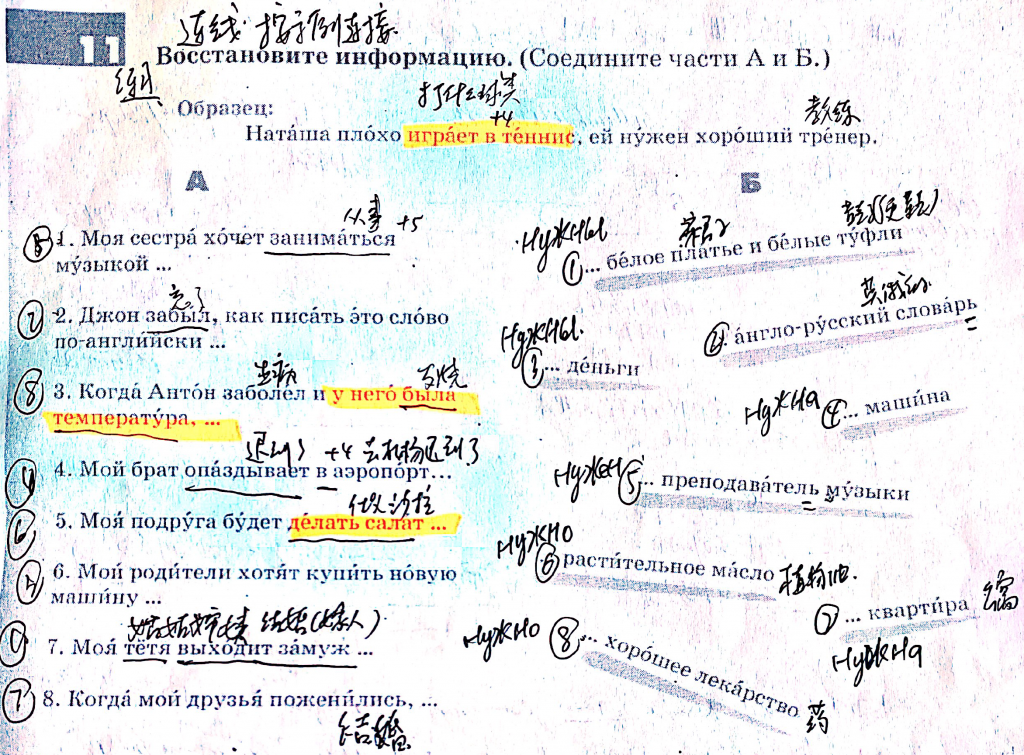 连线 按示例连接
11 Восстановите информацию. (Соедините части А и Б.)
练习
Образец:
打什么球类 +4 教练
Ната́ша пло́хо игра́ет в те́ннис, ей ну́жен хоро́ший тре́нер.
А
Б
从事 +5
⑤ 1. Моя сестра́ хо́чет занима́ться
му́зыкой ...
忘了
② 2. Джон забы́л, как писа́ть э́то сло́во
по-англи́йски ...
生病 发烧
⑧ 3. Когда́ Анто́н заболе́л и у него́ была́
температу́ра, ...
迟到了 +4 去机场迟到了
④ 4. Мой брат опа́здывает в аэропо́рт...
做沙拉
⑥ 5. Моя́ подру́га бу́дет де́лать сала́т ...
6. Мои́ роди́тели хотя́т купи́ть но́вую
маши́ну ...
结婚(嫁人)
① 7. Моя́ тётя выхо́дит за́муж ...
⑦ 8. Когда́ мои́ друзья́ пожени́лись, ...
结婚
нужны
① ... бе́лое пла́тье и бе́лые ту́фли
英俄的
② а́нгло-ру́сский слова́рь
нужны
③ ... де́ньги
нужна
④ ... маши́на
нужен
⑤ ... преподава́тель му́зыки
нужно
⑥ расти́тельное ма́сло 植物油.
⑦ ... кварти́ра
нужна
нужно
⑧ ... хоро́шее лека́рство 药